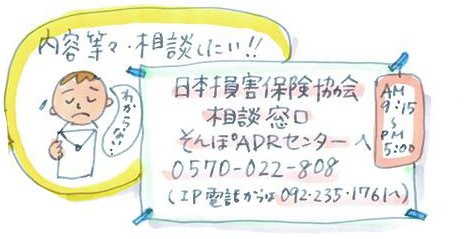 内容等々・相談したい!!
わからない…
日本損害保険協会
相談窓口
そんぽADRセンターへ
0570-022-808
(IP電話からは092・235・1761へ)
AM
9:15
~
PM
5:00